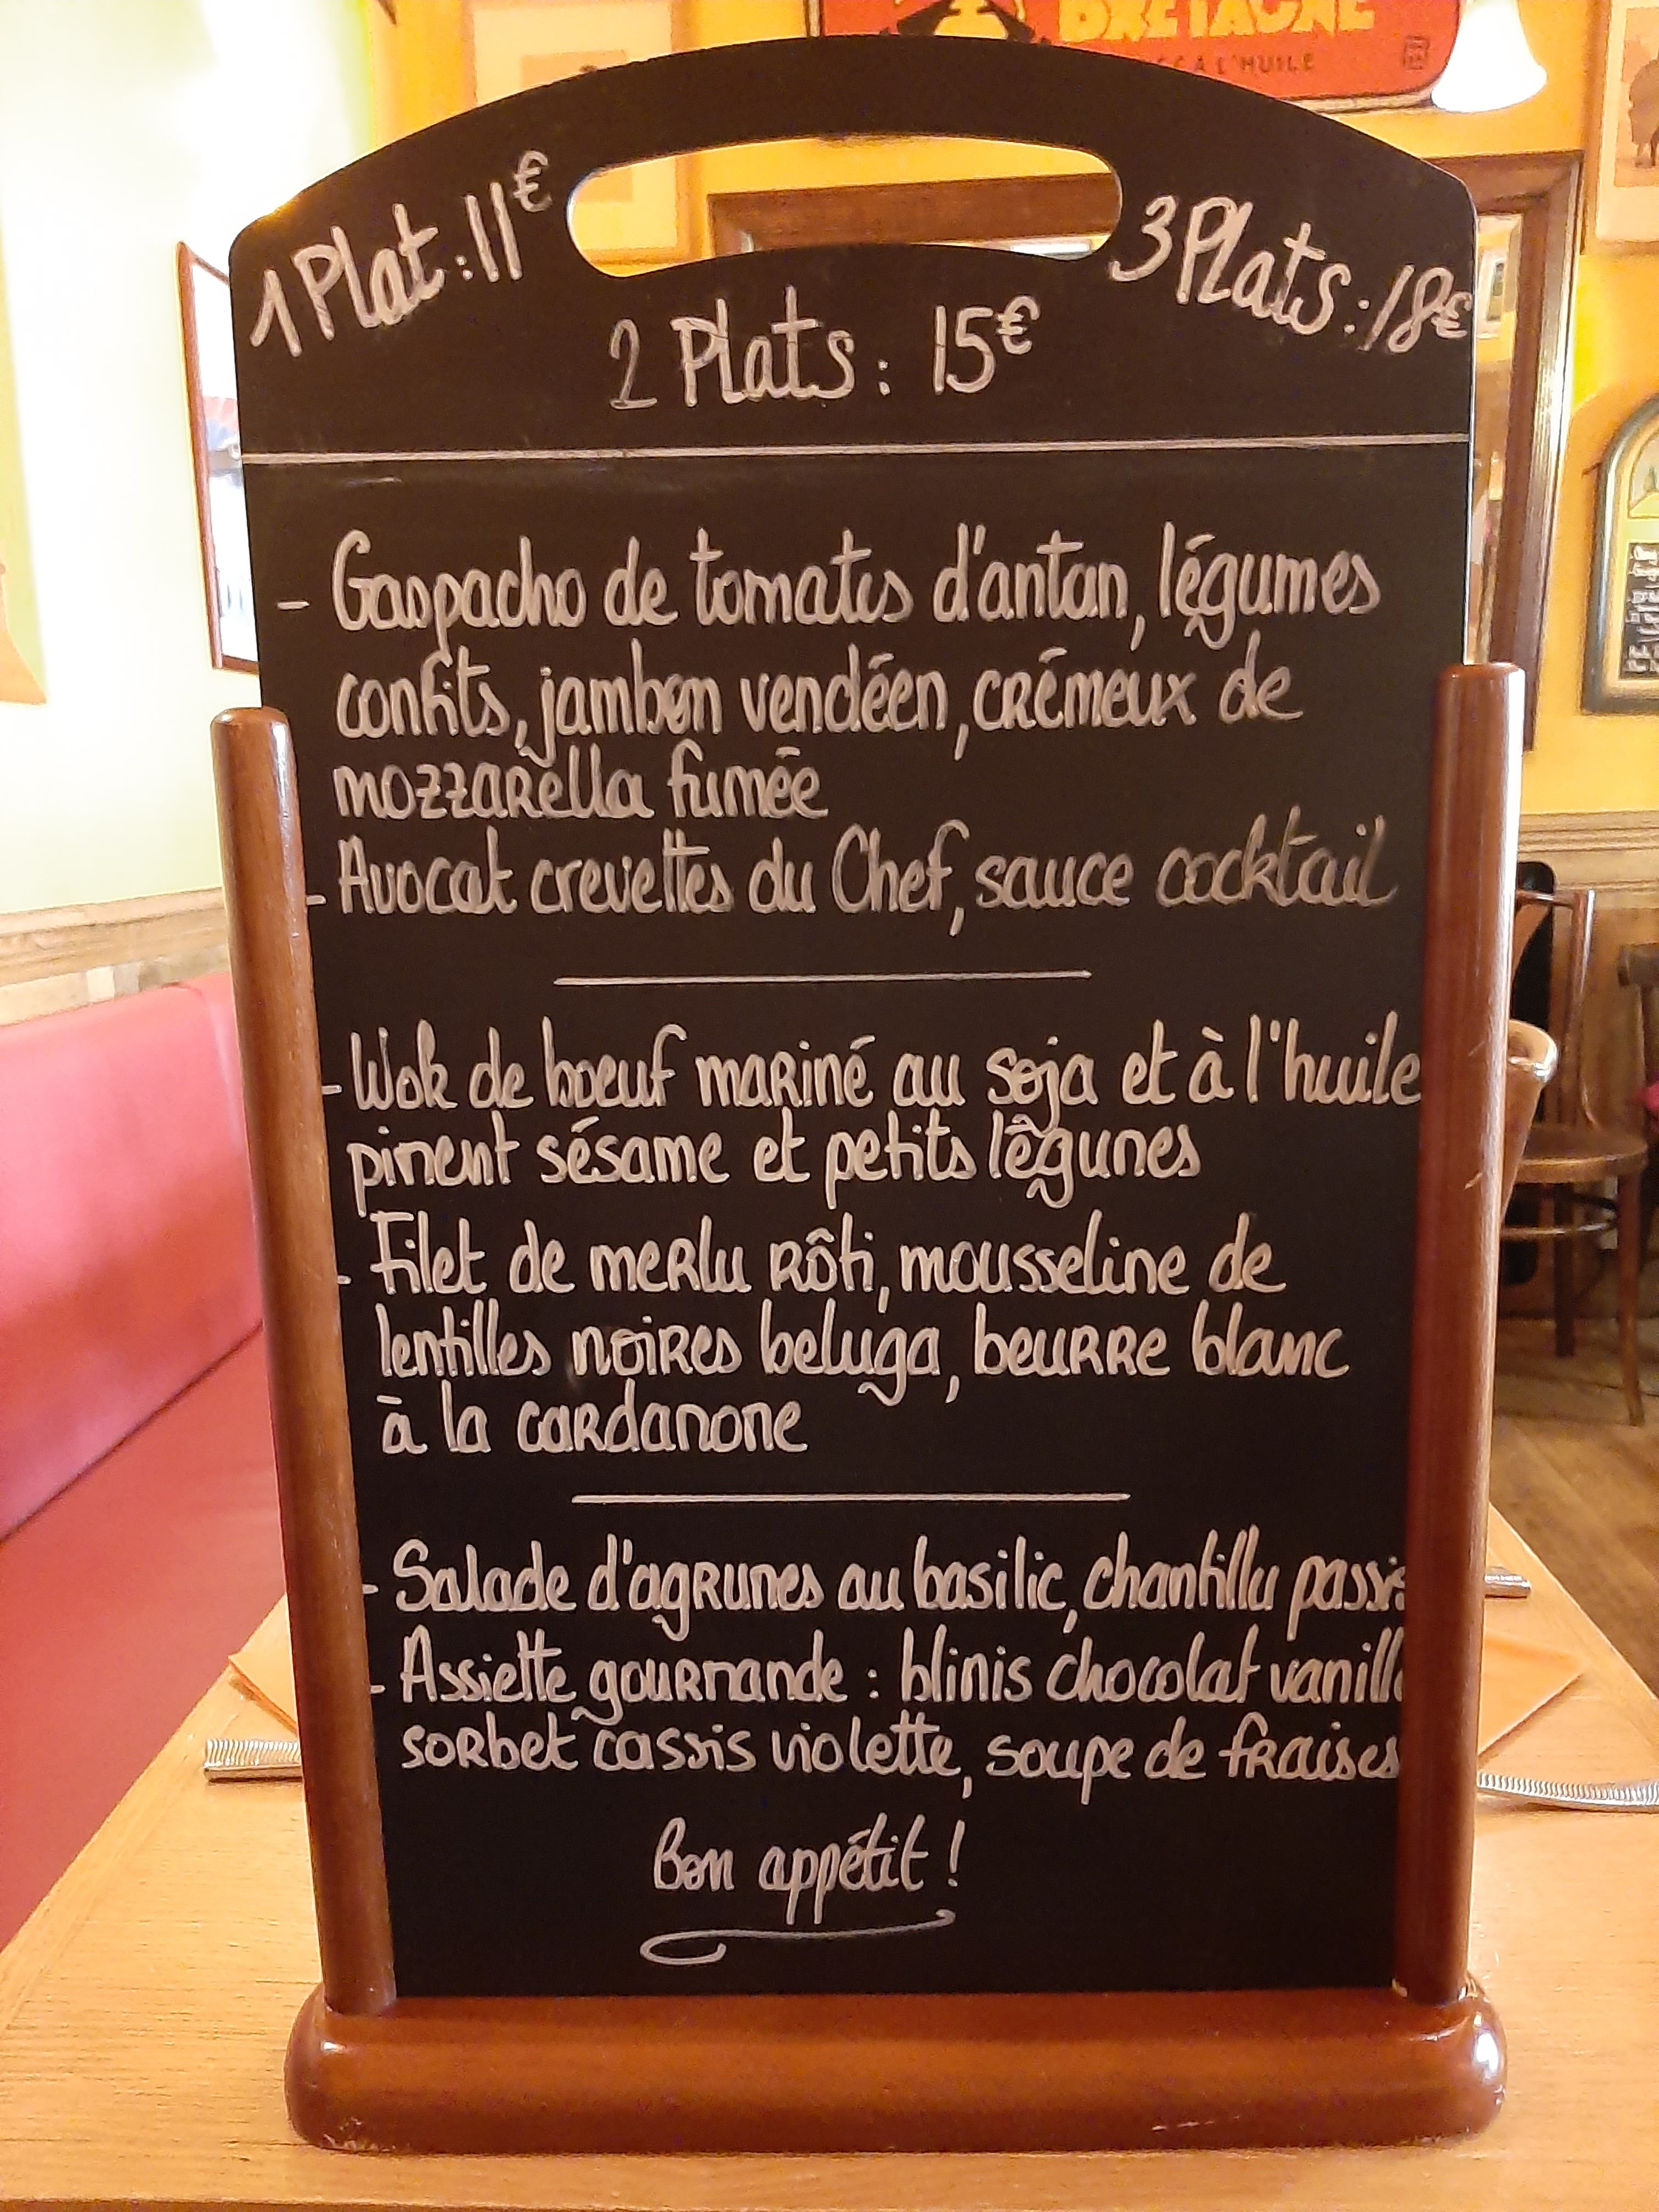 BRETAGNE
A L'HUILE
1 Plat : 11€
3 Plats : 18€
2 Plats : 15€
- Gaspacho de tomates d'antan, légumes
confits, jambon vendéen, crémeux de
mozzarella fumée
- Avocat crevettes du Chef, sauce cocktail
- Wok de boeuf mariné au soja et à l'huile
piment sésame et petits légumes
- Filet de merlu rôti, mousseline de
lentilles noires beluga, beurre blanc
à la cardamone
- Salade d'agrumes au basilic, chantilly
- Assiette gourmande : blinis chocolat
sorbet cassis violette, soupe de fraises
Bon appétit !